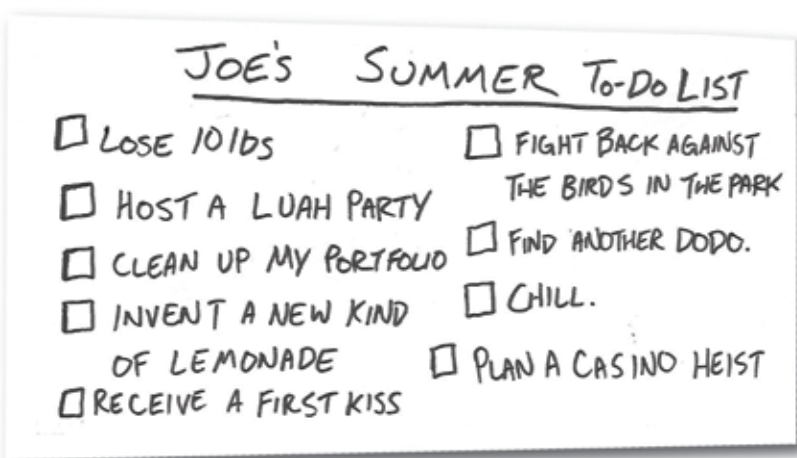 JOE'S SUMMER TO-DO LIST
LOSE 10 lbs
HOST A LUAH PARTY
CLEAN UP MY PORTFOLIO
INVENT A NEW KIND
OF LEMONADE
RECEIVE A FIRST KISS
FIGHT BACK AGAINST
THE BIRDS IN THE PARK
FIND ANOTHER DODO.
CHILL.
PLAN A CASINO HEIST